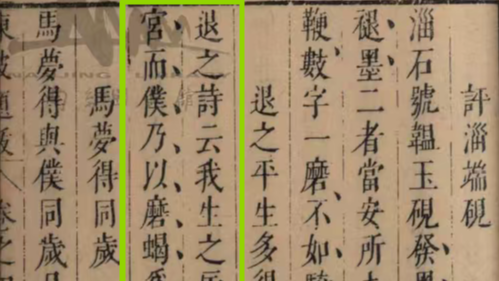 評淄端硯
淄石號韞玉硯發墨
褪墨二者當安所
鞭數字一磨不如騎
退之平生多得
退之詩云我生之辰
宮而僕乃以磨蝎爲
馬夢得同歲
馬夢得與僕同歲月
東坡題跋 卷之